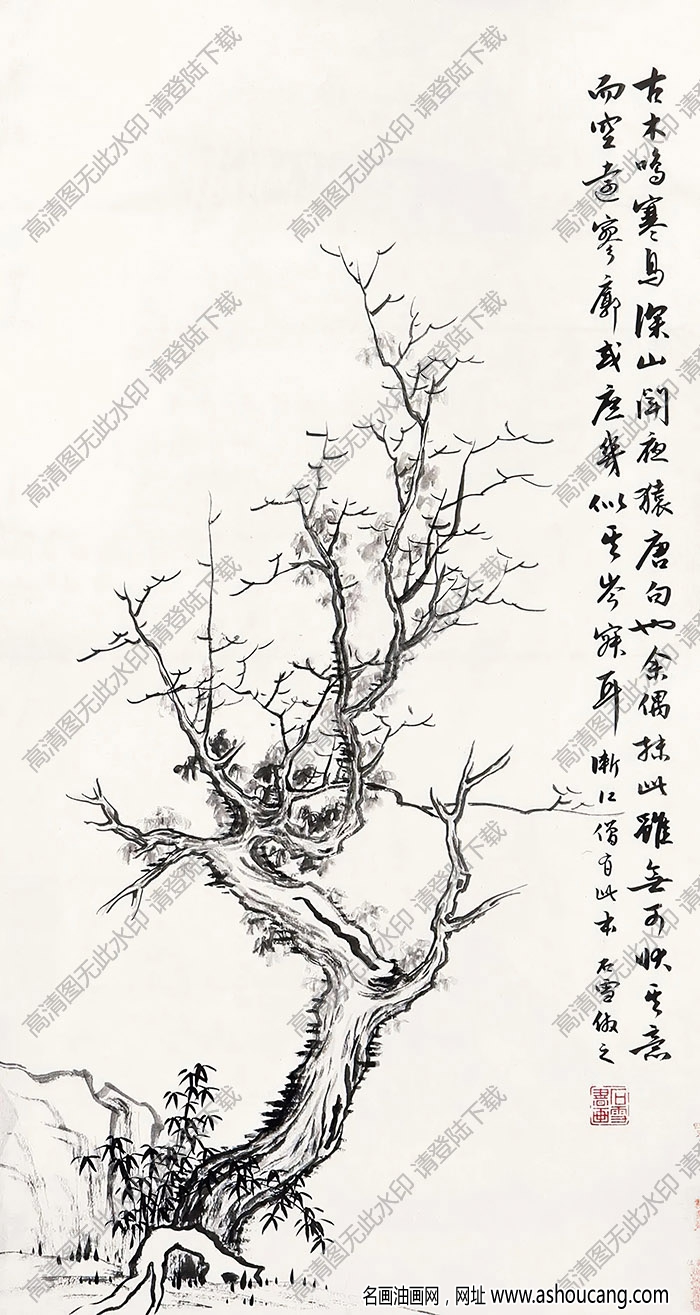 古木鸣寒鸟深山闻夜猿唐句也余偶抹此虽无可状其意
而空远寥廓或庶几似其岑寂耳 渐江僧有此本 石雪仿之
石雪書画
高清图无此水印 请登陆下载
名画油画网，网址 www.ashoucang.com